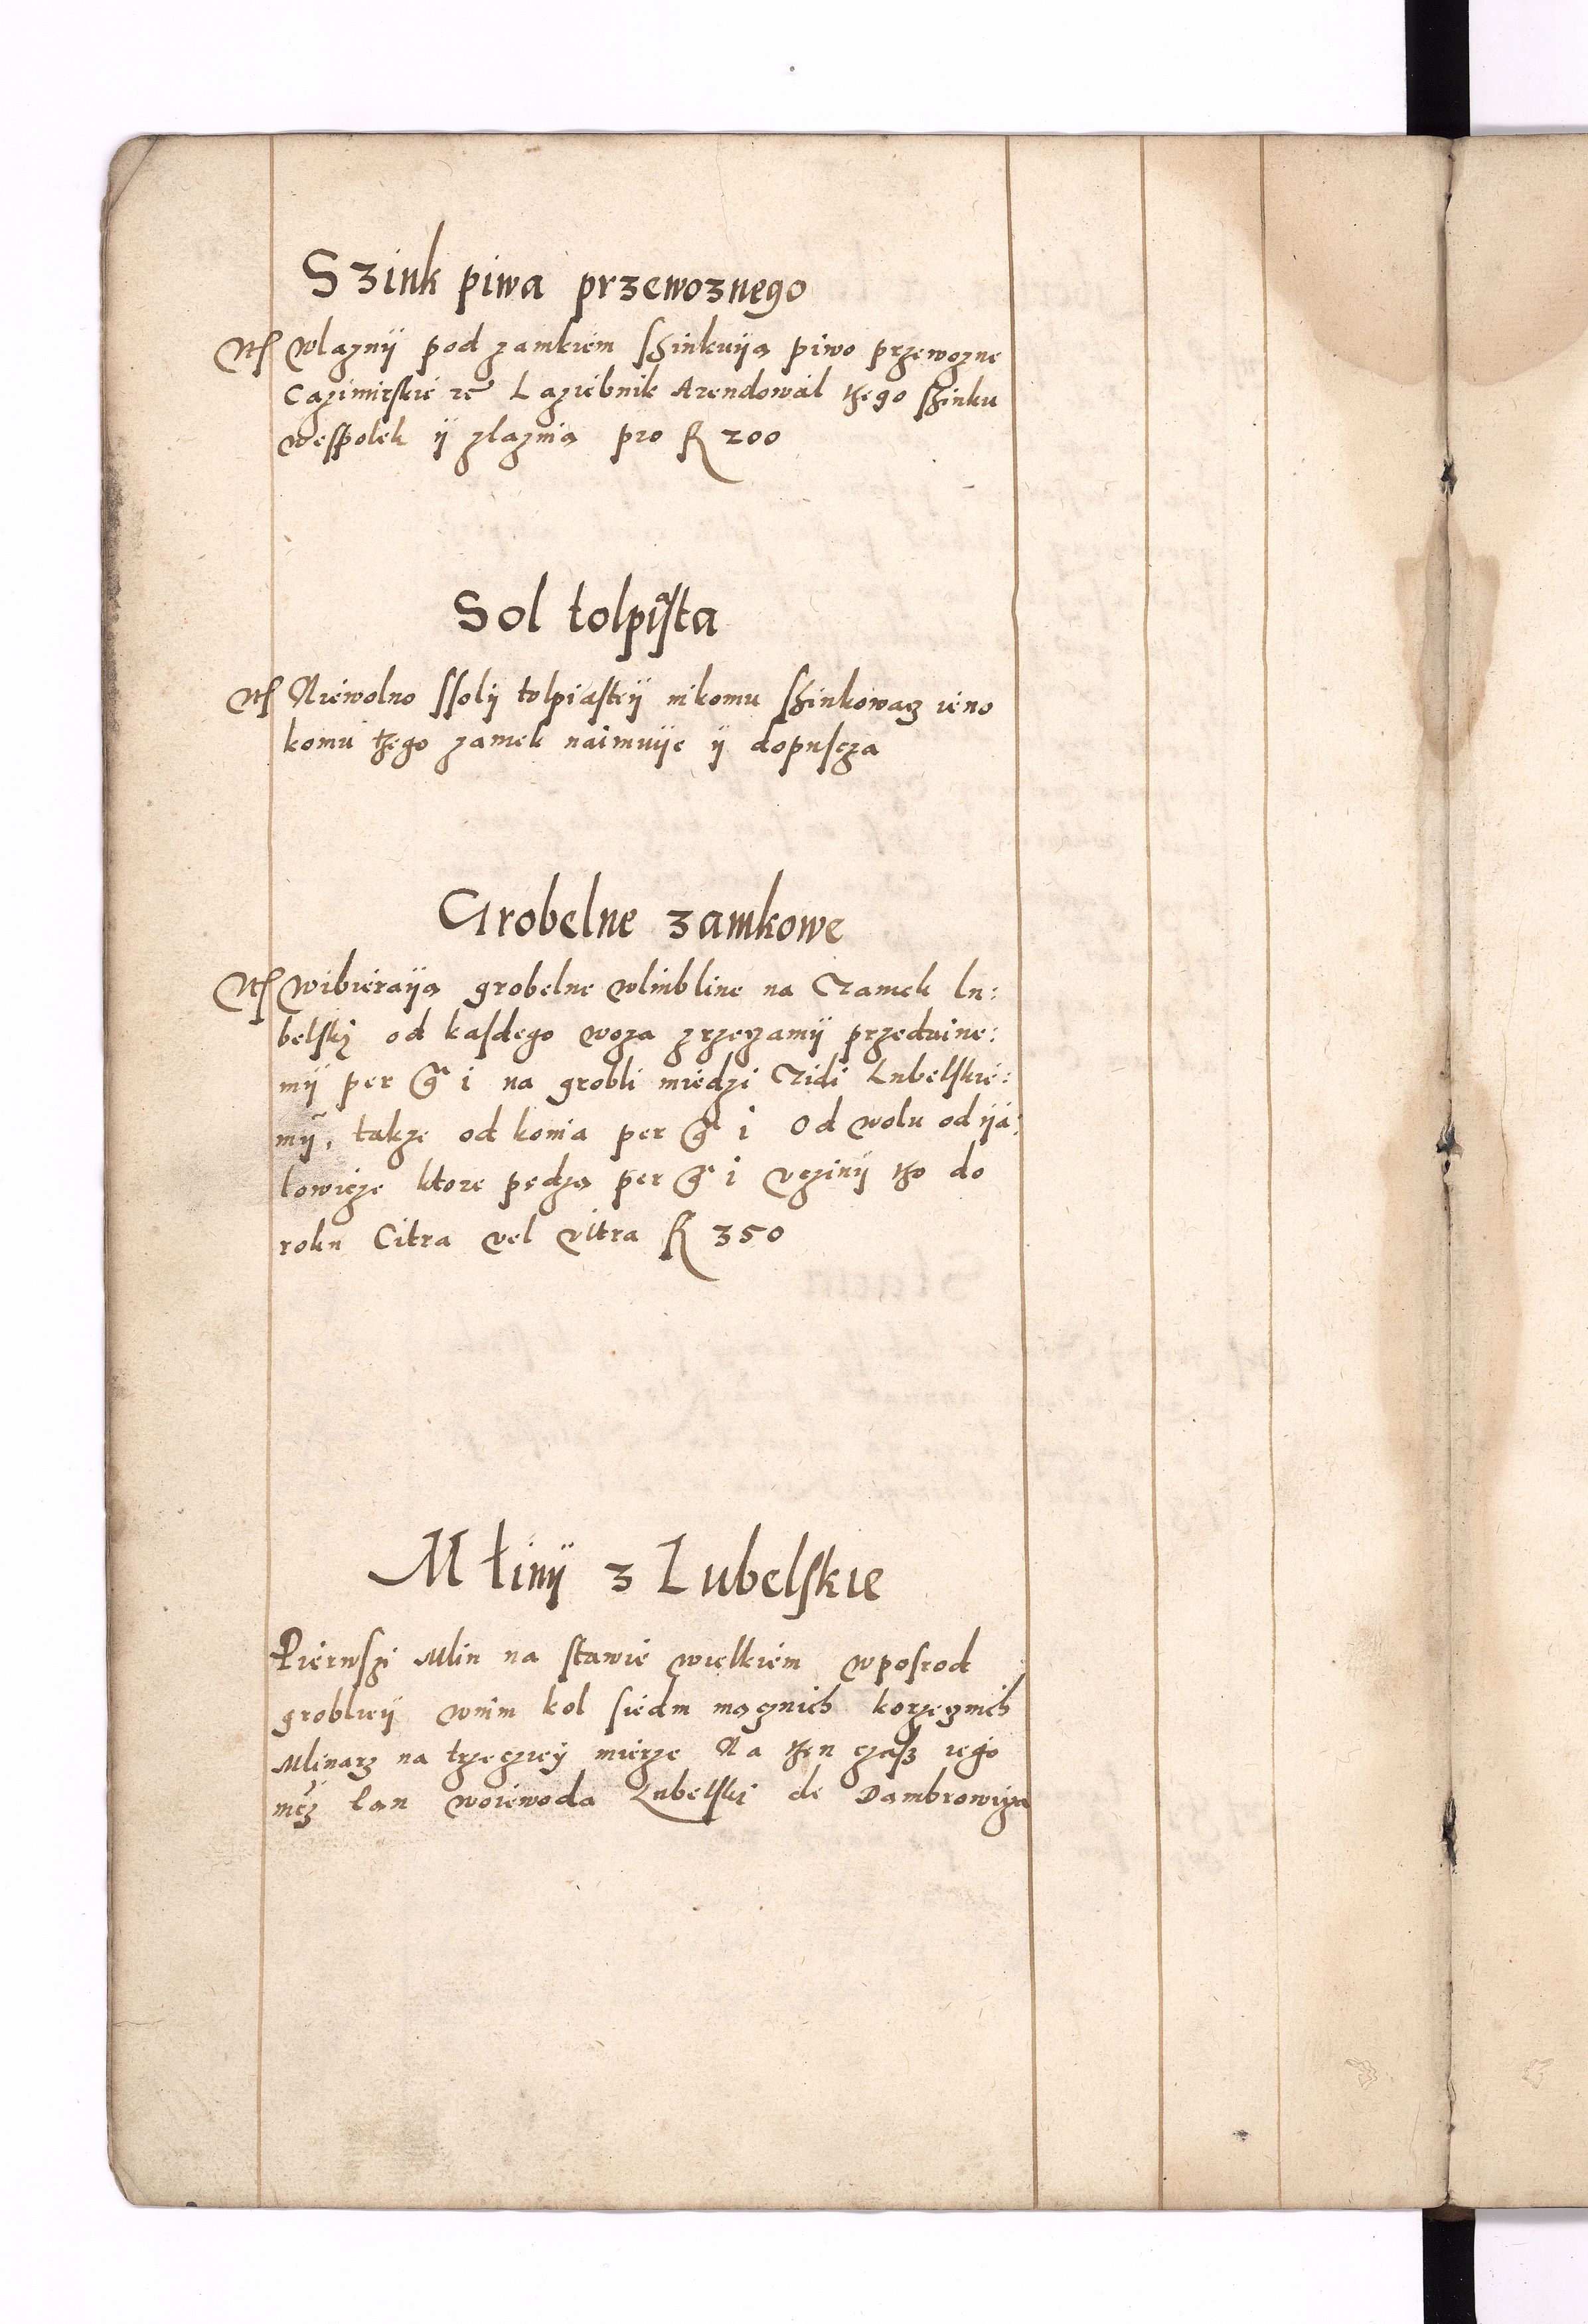 Szink piwa przewoznego
Itẽ Wlaznÿ pod zamkiem szinkuÿą piwo przewozne
Cazimirskie rc̃ Laziebnik Arendowal tzego szinku
wespolek ÿ zlaznią pro R 200
Sol tolpiasta
Itẽ Niewolno ssolÿ tolpiasteÿ nikomu szinkowacz ieno
komu tzego zamek naimuÿe ÿ dopuscza
Grobelne zamkowe
Itẽ Wibieraÿą grobelne wlublinie na Zamek lu:
belskj od kasdego woza zrzeczamÿ przedaine:
mÿ per gr̃ i na grobli miedzi Zidi Lubelskie:
mÿ, takze od konia per gr̃ i Od wolu od ÿa:
lowicze ktore pędzą per gr̃ i vczinÿ tzo do
roku Citra vel vltra R 350
Młinÿ z Lubelskie
Pierwszi Mlin na stawie wielkiem wposrod
groblieÿ wnim kol siedm mącznich korzecznich
Mlinarz na trzeczieÿ mierze Na tzen czasz iego
mcz̃ Ian woiewoda Lubelski de Dambrowiza